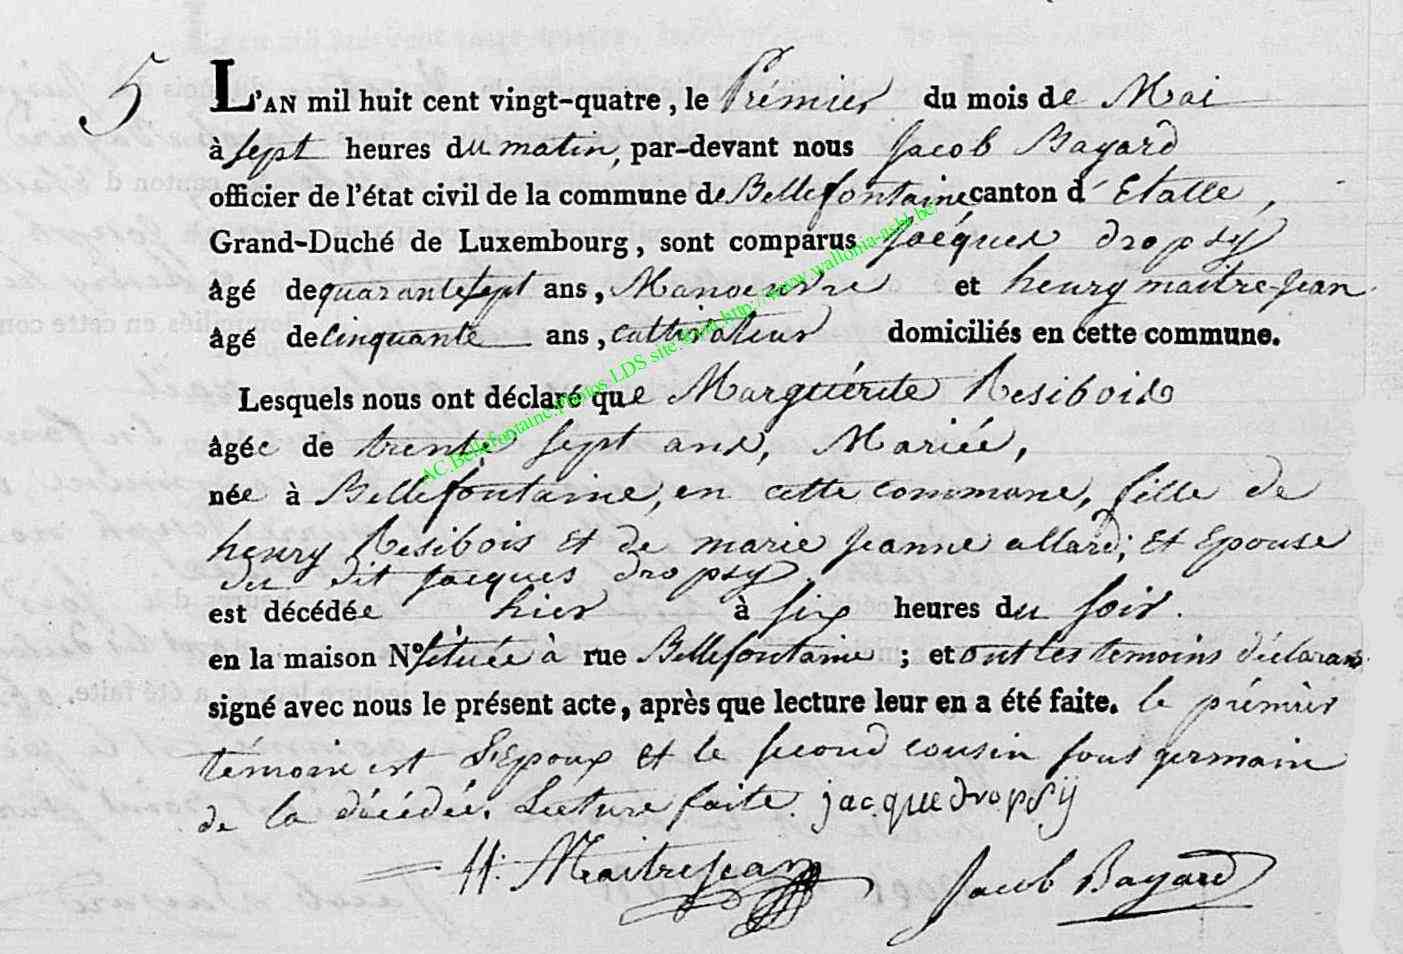 5
L'AN mil huit cent vingt-quatre, le Prémier du mois de Mai
à sept heures du matin, par-devant nous Jacob Bayard
officier de l'état civil de la commune de Bellefontaine canton d'Etalle,
Grand-Duché de Luxembourg, sont comparus Jacques dropsy
âgé de quarante sept ans, Manoeuvre et henry maitre-Jean
âgé de cinquante ans, cultivateur domiciliés en cette commune.
Lesquels nous ont déclaré que Marguérite Résibois
âgée de trente sept ans, Mariée,
née à Bellefontaine, en cette commune, fille de
henry Resibois et de marie Jeanne allard; et Epouse
du dit Jacques dropsy
est décédée hier à six heures du soir.
en la maison N° située à rue Bellefontaine; et ont les temoins déclarans
signé avec nous le présent acte, après que lecture leur en a été faite. le prémier
témoin est L'Epoux et le second cousin sous germain
de la décédée. Lecture faite. jacque dropsÿ
H: Maitrejean Jacob Bayard
AC Bellefontaine Photos LDS site http://www.wallonia-asbl.be